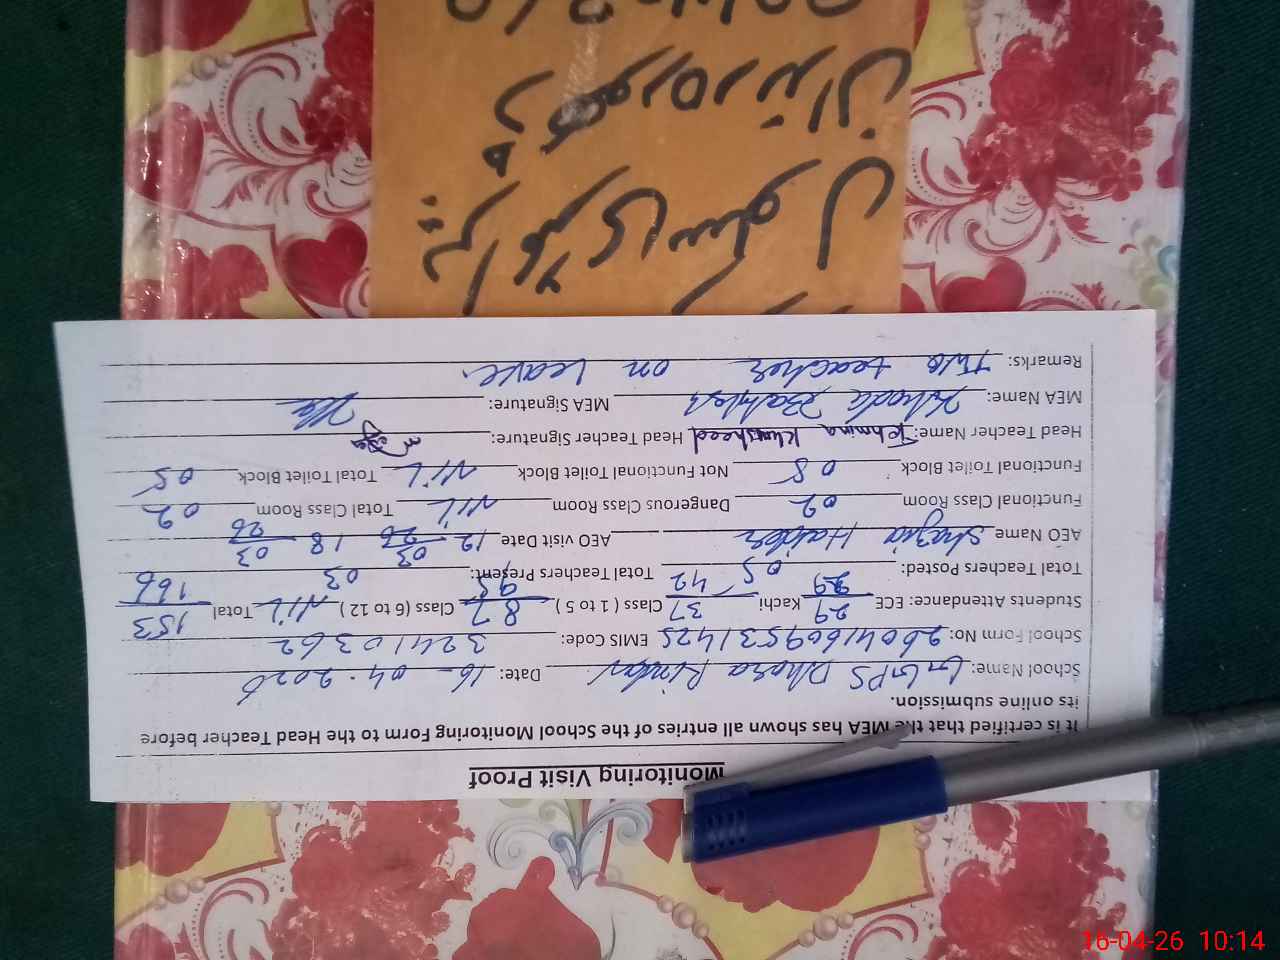 Monitoring Visit Proof
It is certified that the MEA has shown all entries of the School Monitoring Form to the Head Teacher before
its online submission.
School Name: GGPS Dhora Rindan Date: 16-04-2026
School Form No: 26041609531425 EMIS Code: 32410362
Students Attendance: ECE 29/29 Kachi 37/42 Class ( 1 to 5 ) 87/95 Class (6 to 12 ) NIL Total 153/166
Total Teachers Posted: 05 Total Teachers Present: 03
AEO Name Shazia Haider AEO visit Date 12/03/26 18/03/26
Functional Class Room 02 Dangerous Class Room NIL Total Class Room 02
Functional Toilet Block 05 Not Functional Toilet Block NIL Total Toilet Block 05
Head Teacher Name: Tehmina Khursheed Head Teacher Signature:
MEA Name: Khuda Bakhsh MEA Signature:
Remarks: Two teacher on leave.
پرائمری سکول
16-04-26 10:14